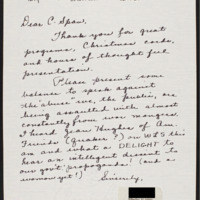 Dear C-Span,
Thank you for great
programs, Christmas cards,
and hours of thoughtful
presentation.
Please present some
balance to speak against
the "abuse" we, the public, are
being assaulted with almost
constantly from war mongers.
I heard Jean Hughes of Am.
Friends (Quaker?) on W&S this
am and what a DELIGHT to
hear an intelligent dissent to
our gov't propaganda! (and a
woman yet!)
Sincerely,